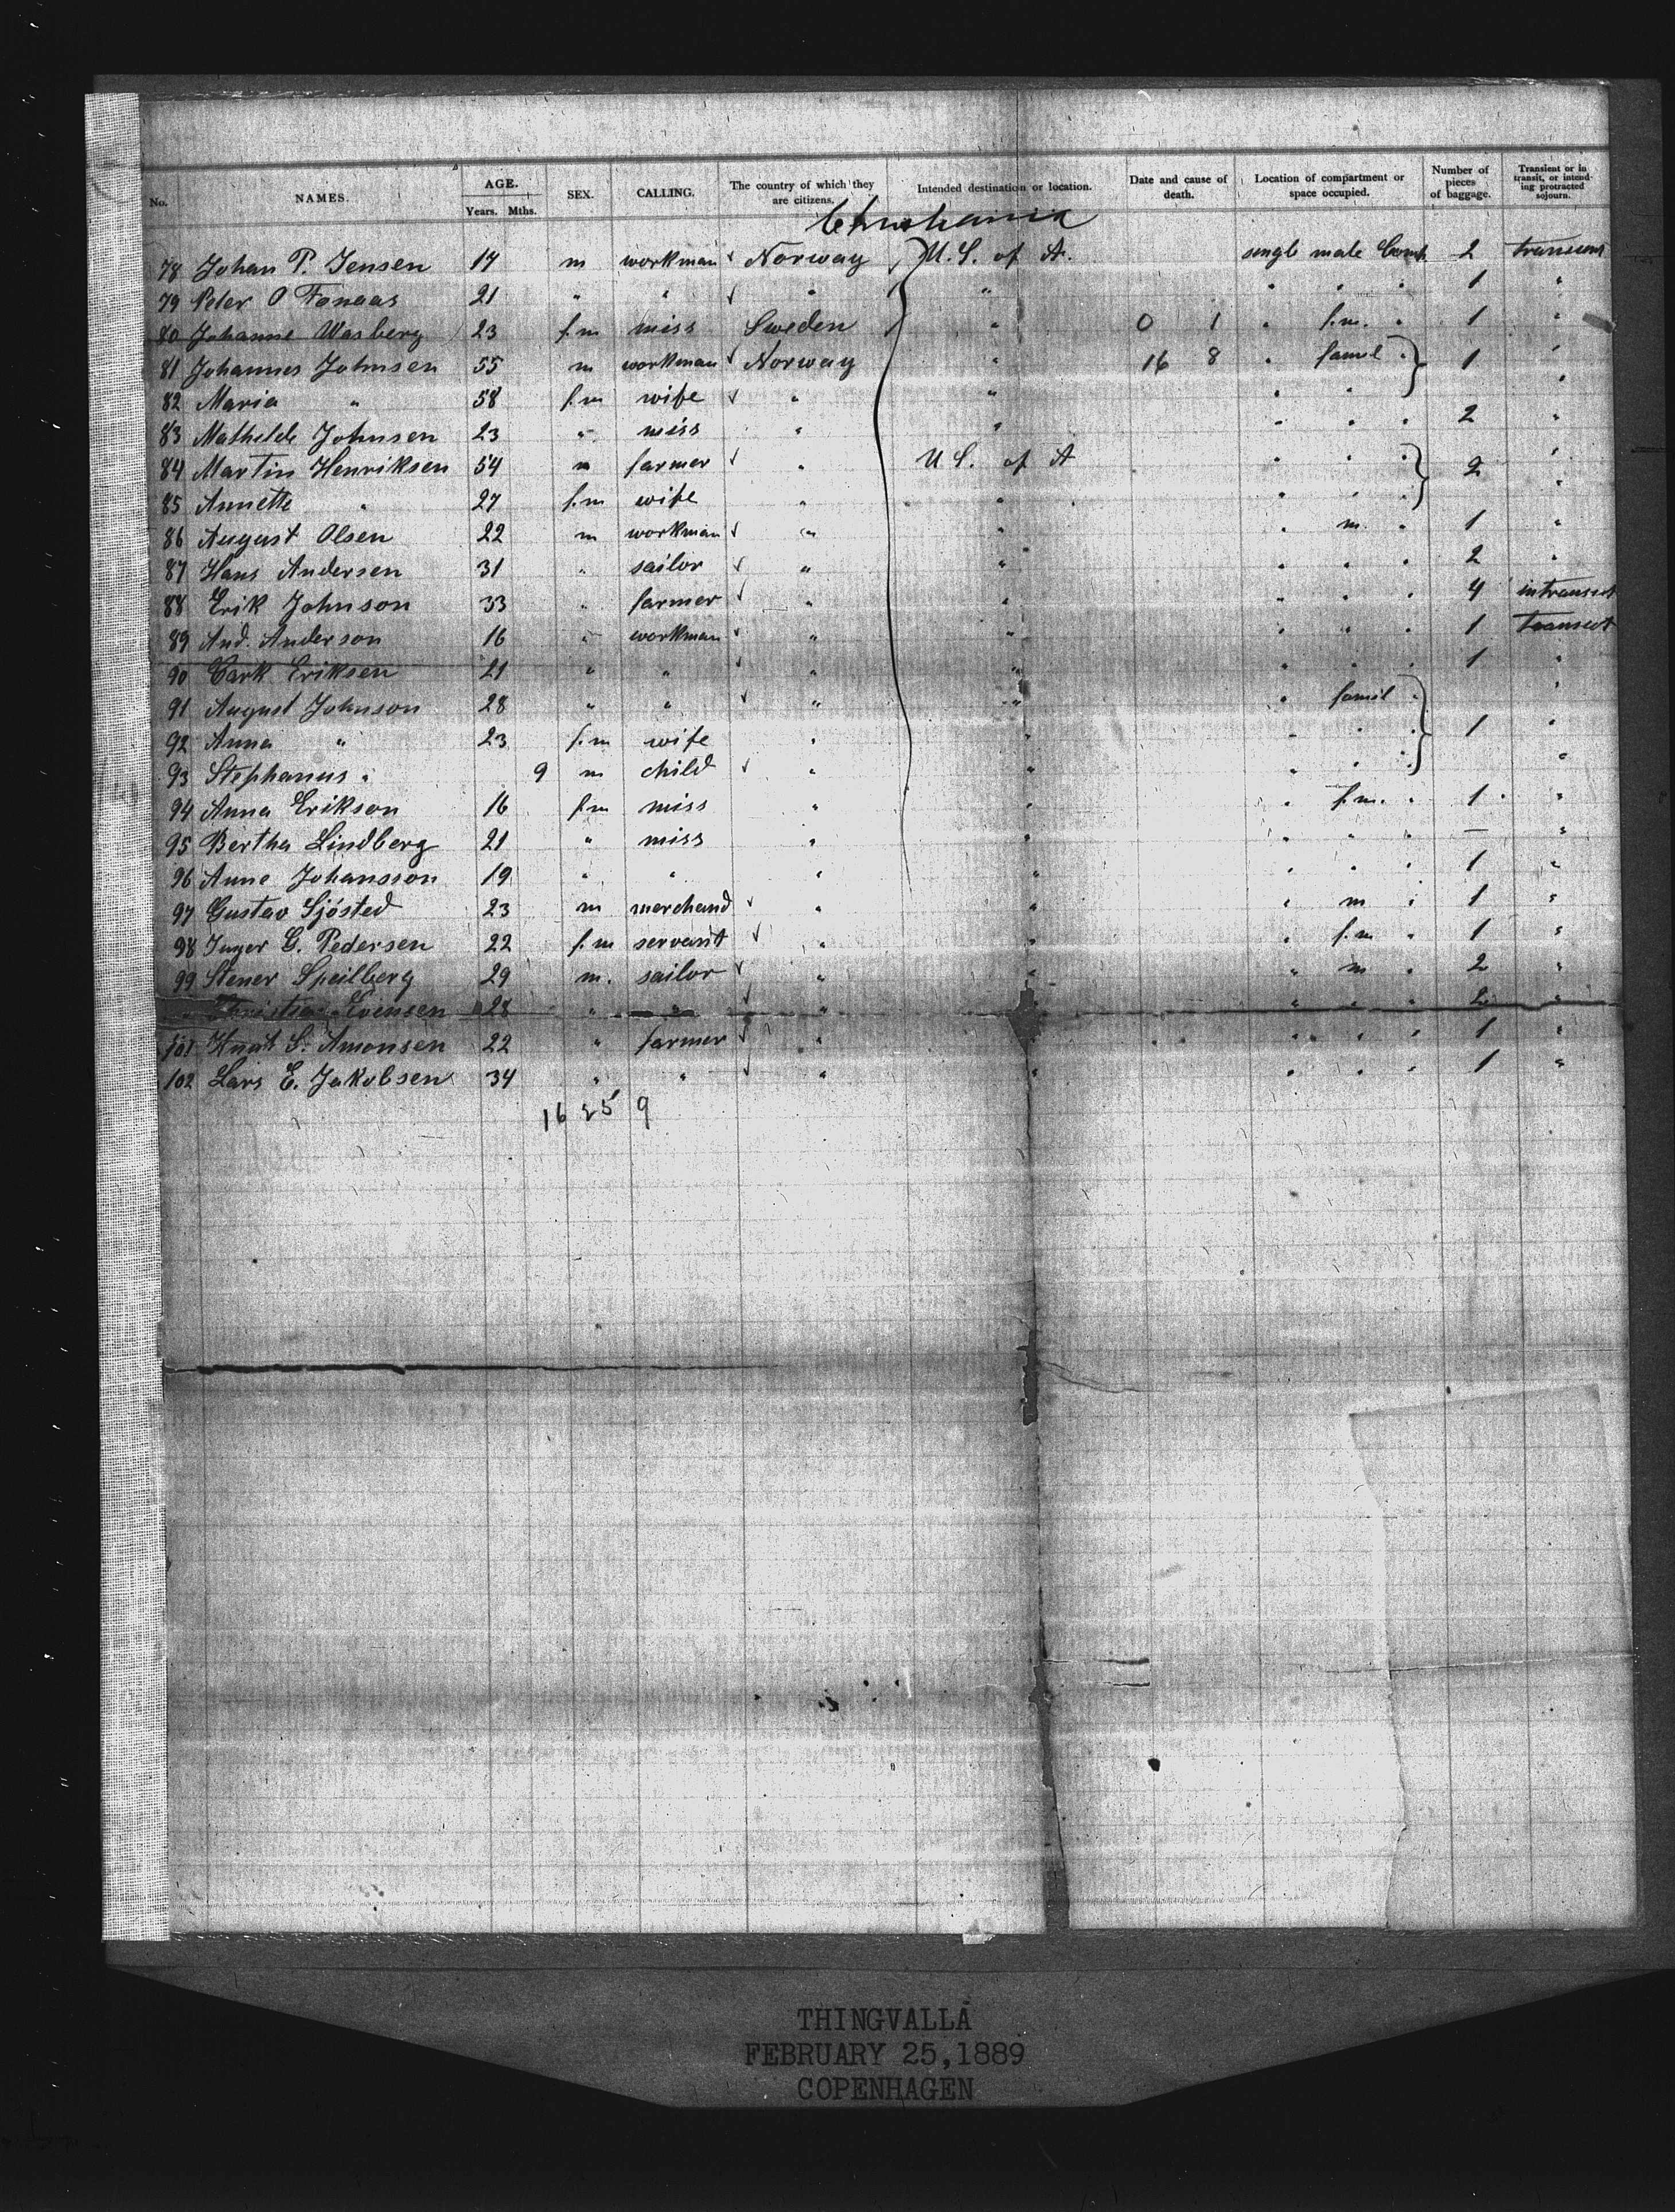 No. NAMES. AGE. Years. Mths. SEX. CALLING. The country of which they are citizens. Intended destination or location. Date and cause of death. Location of compartment or space occupied. Number of pieces of baggage. Transient or in transit, or intending protracted sojourn.
Christiania
78 Johan P. Jensen 17 m workman Norway U. S. of A. single male Comp 2 transient
79 Peter O Fanaas 21 " " " " " " " 1 "
80 Johanne Wasberg 23 f.m miss Sweden " 0 1 " f.m. " 1 "
81 Johannes Johnsen 55 m workman Norway " 16 8 " famil " 1 "
82 Maria " 58 f.m wife " " " " "
83 Mathilde Johnsen 23 " miss " " " " " 2 "
84 Martin Henriksen 54 m farmer " U S. of A " " " 2 "
85 Annette " 27 f.m wife " " " " " "
86 August Olsen 22 m workman " " " m. " 1 "
87 Hans Andersen 31 " sailor " " " " " 2 "
88 Erik Johnson 33 " farmer " " " " " 4 intransit
89 And. Anderson 16 " workman " " " " " 1 transient
90 Eriksen 21 " " " " " " " 1 "
91 August Johnson 28 " " " " " famil " "
92 Anna " 23 f.m wife " " " " " 1 "
93 Stephanus " 9 m child " " " " " "
94 Anna Erikson 16 f.m miss " " " f.m. " 1 "
95 Bertha Lindberg 21 " miss " " " " " — "
96 Anne Johansson 19 " " " " " " " 1 "
97 Gustav Sjösted 23 m merchand " " " m " 1 "
98 Inger G. Pedersen 22 f.m servant " " " f.m " 1 "
99 Stener Speilberg 29 m. sailor " " " m " 2 "
Evensen 28 " " " " " " " 2 "
101 Knut S. Amonsen 22 " farmer " " " " " 1 "
102 Lars E. Jakobsen 34 " " " " " " " 1 "
16 25 9
THINGVALLA
FEBRUARY 25,1889
COPENHAGEN